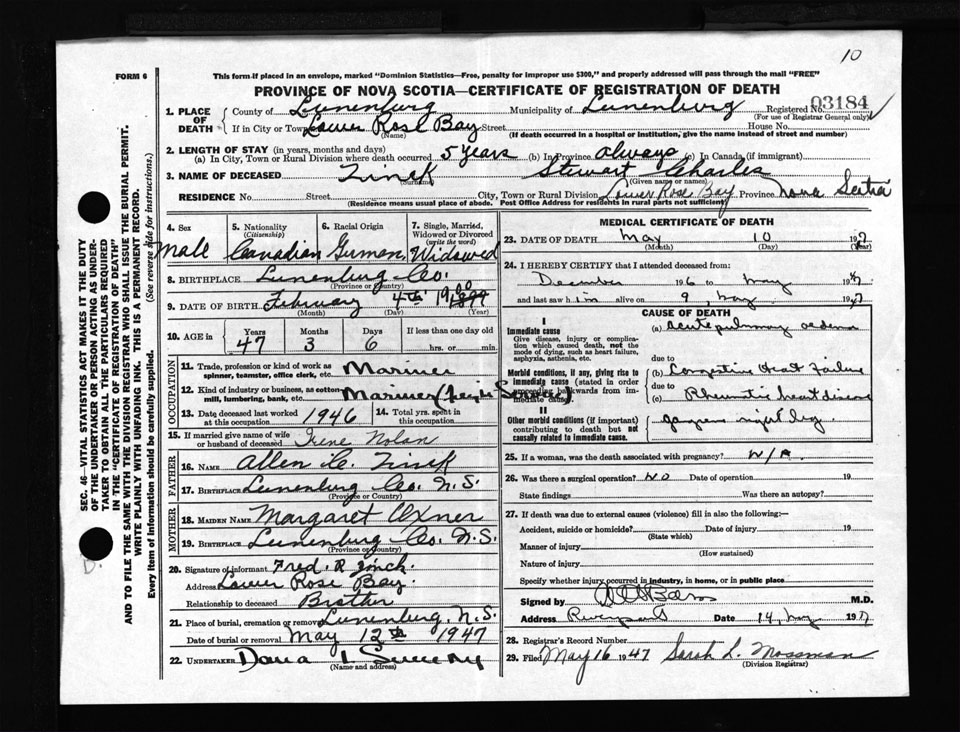 10
FORM 6
This form if placed in an envelope, marked "Dominion Statistics—Free, penalty for improper use $300," and properly addressed will pass through the mail "FREE"
PROVINCE OF NOVA SCOTIA—CERTIFICATE OF REGISTRATION OF DEATH
1. PLACE OF DEATH
County of Lunenburg Municipality of Lunenburg Registered No. 03184
(For use of Registrar General only)
If in City or Town Lower Rose Bay Street House No.
(Name) (If death occurred in a hospital or institution, give the name instead of street and number)
2. LENGTH OF STAY (in years, months and days)
(a) In City, Town or Rural Division where death occurred 5 years (b) In Province always (c) In Canada (if immigrant)
3. NAME OF DECEASED Zinck Stewart Charles
(Surname) (Given name or names)
RESIDENCE No. Street City, Town or Rural Division Lower Rose Bay Province Nova Scotia
(Residence means usual place of abode. Post Office Address for residents in rural parts not sufficient)
4. Sex
Male
5. Nationality
(Citizenship)
Canadian
6. Racial Origin
German
7. Single, Married, Widowed or Divorced
(write the word)
Widowed
8. BIRTHPLACE Lunenburg Co.
(Province or Country)
9. DATE OF BIRTH February 4th 1900
(Month) (Day) (Year)
10. AGE in
Years Months Days If less than one day old
47 3 6 hrs. or min.
OCCUPATION
11. Trade, profession or kind of work as spinner, teamster, office clerk, etc. Mariner
12. Kind of industry or business, as cotton-mill, lumbering, bank, etc. Mariner
13. Date deceased last worked at this occupation 1946
14. Total yrs. spent in this occupation
15. If married give name of wife or husband of deceased Irene Nolan
FATHER
16. NAME Allen C. Zinck
17. BIRTHPLACE Lunenburg Co. N.S.
(Province or Country)
MOTHER
18. MAIDEN NAME Margaret
19. BIRTHPLACE Lunenburg Co. N.S.
(Province or Country)
20. Signature of informant Fred. R Zinck
Address Lower Rose Bay.
Relationship to deceased Brother
21. Place of burial, cremation or removal Lunenburg, N.S.
Date of burial or removal May 12th 1947
22. UNDERTAKER Dana Sweeny
(Name and address)
MEDICAL CERTIFICATE OF DEATH
23. DATE OF DEATH May 10 1947
(Month) (Day) (Year)
24. I HEREBY CERTIFY that I attended deceased from:
December 1946 to May 1947
and last saw him alive on 9, May 1947
CAUSE OF DEATH
I
Immediate cause
Give disease, injury or complication which caused death, not the mode of dying, such as heart failure, asphyxia, asthenia, etc.
(a) acute pulmonary oedema
due to
Morbid conditions, if any, giving rise to immediate cause (stated in order proceeding backwards from immediate cause)
(b) Congestive Heart Failure
due to
(c) Rheumatic heart disease
II
Other morbid conditions (if important) contributing to death but not causally related to immediate cause.
gangrene right leg
25. If a woman, was the death associated with pregnancy? N/A
26. Was there a surgical operation? NO Date of operation 19
State findings Was there an autopsy?
27. If death was due to external causes (violence) fill in also the following:
Accident, suicide or homicide? Date of injury 19
(State which)
Manner of injury
(How sustained)
Nature of injury
Specify whether injury occurred in industry, in home, or in public place
Signed by M.D.
Address Riverport Date 14, May 1947
28. Registrar's Record Number
29. Filed May 16 1947 Sarah L. Mossman
(Division Registrar)
SEC. 46—VITAL STATISTICS ACT MAKES IT THE DUTY
OF THE UNDERTAKER OR PERSON ACTING AS UNDERTAKER TO OBTAIN ALL THE PARTICULARS REQUIRED
IN THE "CERTIFICATE OF REGISTRATION OF DEATH"
AND TO FILE THE SAME WITH THE DIVISION REGISTRAR WHO SHALL ISSUE THE BURIAL PERMIT.
WRITE PLAINLY WITH UNFADING INK. THIS IS A PERMANENT RECORD.
Every item of information should be carefully supplied. (See reverse side for instructions.)